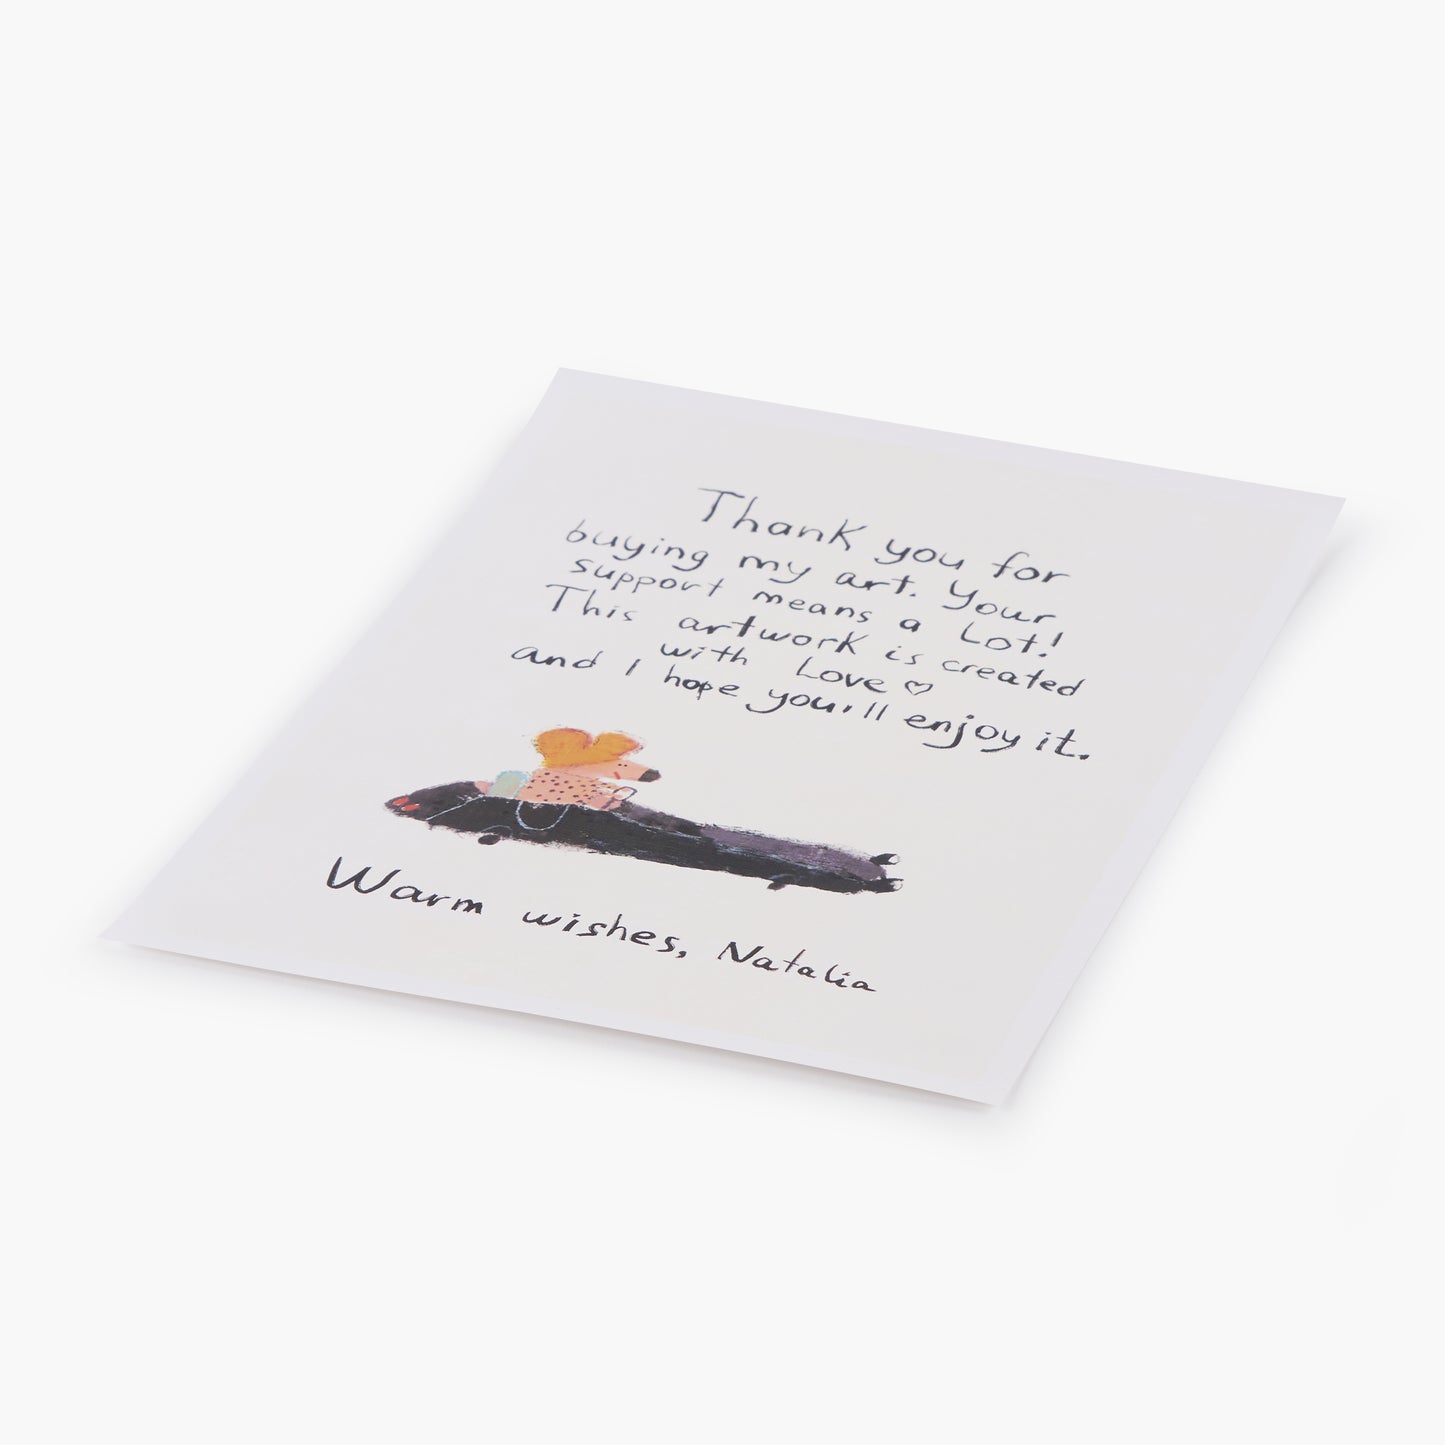 Thank you for
buying my art. Your
support means a Lot!
This artwork is created
with Love ♡
and I hope you'll enjoy it.
Warm wishes, Natalia